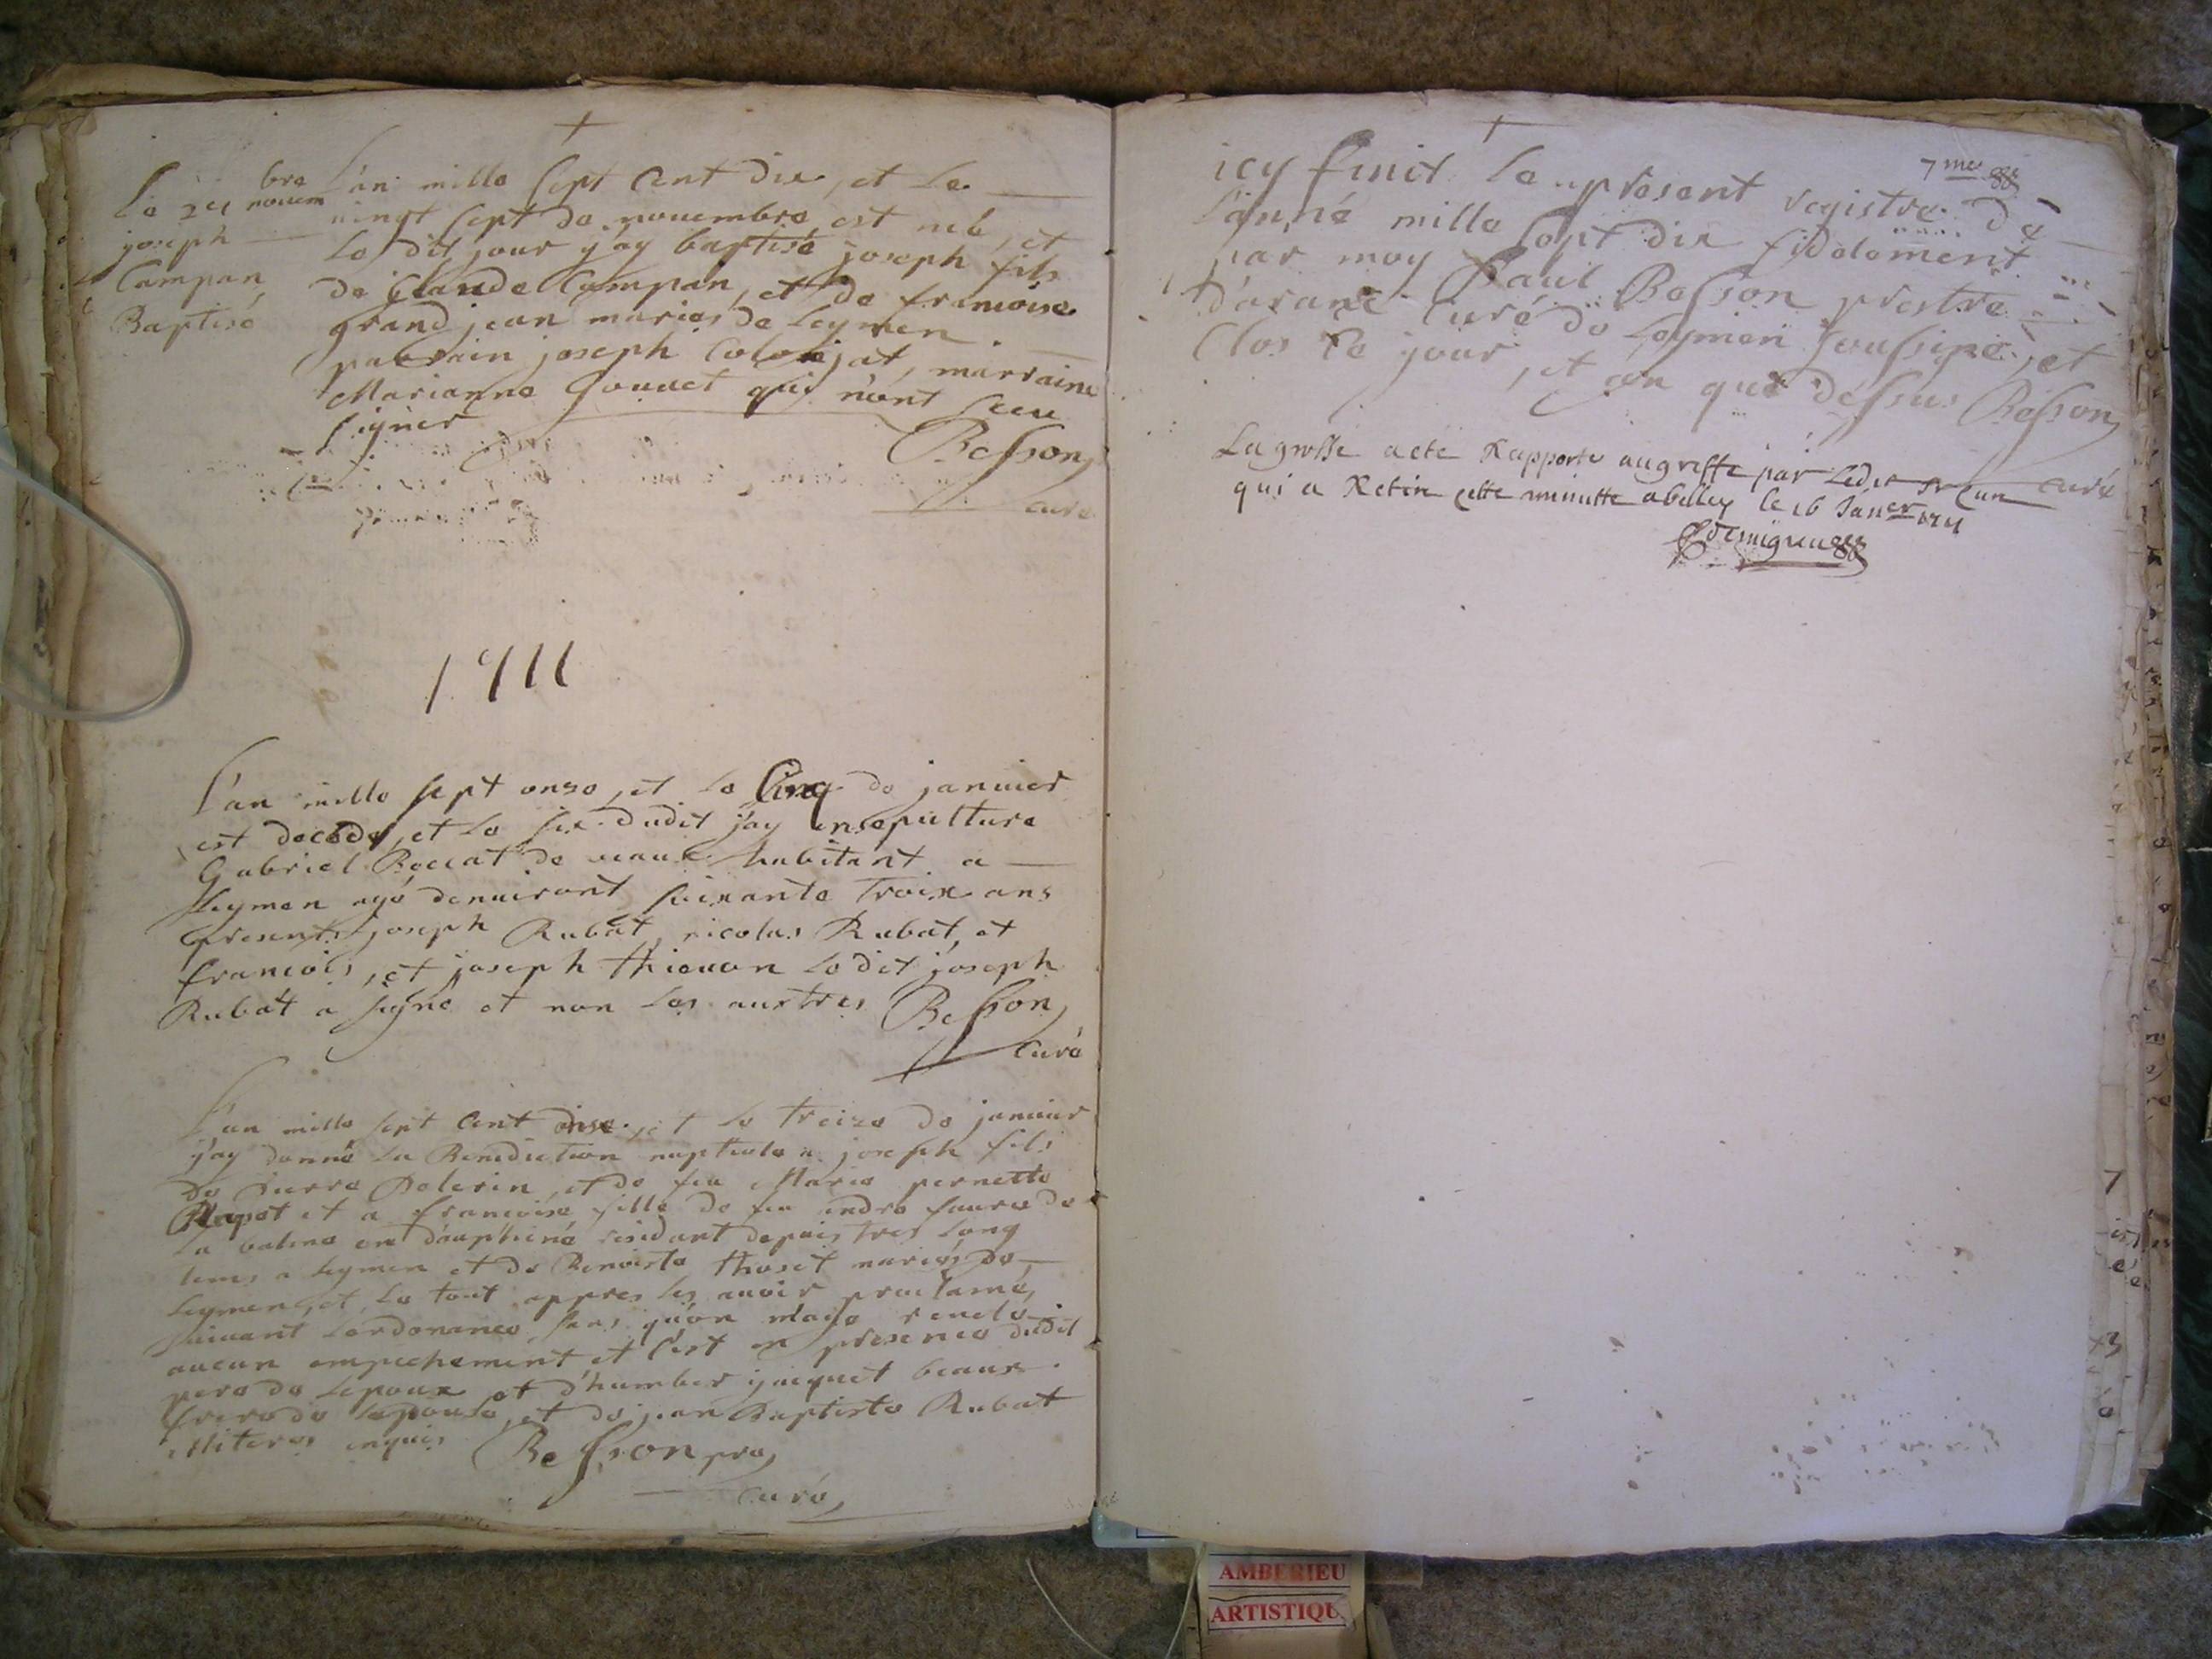 +
Le 24 novembre
joseph
Campan
Baptisé
L'an mille sept cent dix, et le
vingt sept de novembre est neb, et
le dit jour j'ay baptisé joseph fils
de Claude Campan, et de francoise
grand jean maries de Leymen
parrain joseph Colonjat, marraine
Marianne Gouuet qui n'ont sceu
signer
Besson
curé
1711
L'an mille sept onze, et le Cinq de januier
est decedé, et le six dudit j'ay ensepulture
Gabriel Boccat de vaux habitant a
Leymen agé denuiront soixante troix ans
presents joseph Rubat, nicolas Rubat, et
francois, et joseph thieuon le dit joseph
Rubat a signé et non les auxtres Besson
Curé
L'an mille sept cent onse, et le treize de januier
j'ay donné la Benediction nuptiale a joseph fils
de pierre Pelerin, et de feu Marie pernette
et a francoise fille de feu andre faure de
la balme en dauphiné residant depuis tres long
tems a Leymen et de Benoiste thoset mariés de
Leymen, et le tout appres les auoir proclamé,
suiuant lordonance sans qu'on m'aye reuelé
aucun empechement et C'est en presence dudit
pere de lepoux et d'humber jacquet beaux
frere de lepouse, et de jean Baptiste Rubat
illiteres enquis Besson pre
curé
+
7me
icy finit le present registre de
l'anné mille sept dix fidelement
par moy Paul Besson prestre
d'arane curé de Leymen soussigné, et
Clos ce jour, et an que dessus Besson
curé
La grosse a eté Rapporté au greffe par Ledit sr Curé
qui a Retiré cette minutte a belley le 16 Janer 1711
AMBERIEU
ARTISTIQU